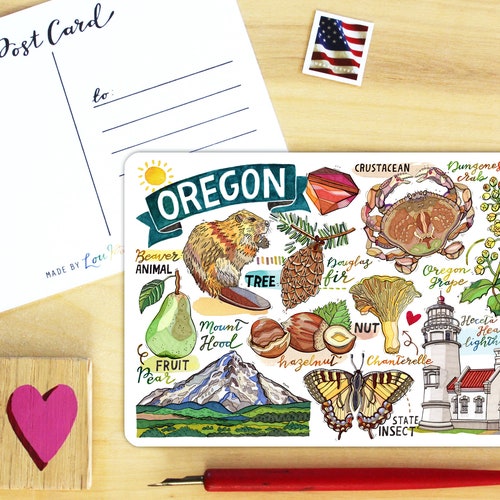 Post Card
to:
MADE BY
OREGON
CRUSTACEAN
Dungeness
crab
Beaver
ANIMAL
TREE
Douglas
fir
Oregon
Grape
Mount
Hood
NUT
Heceta
Head
lighthouse
FRUIT
Pear
hazelnut
Chanterelle
STATE
INSECT